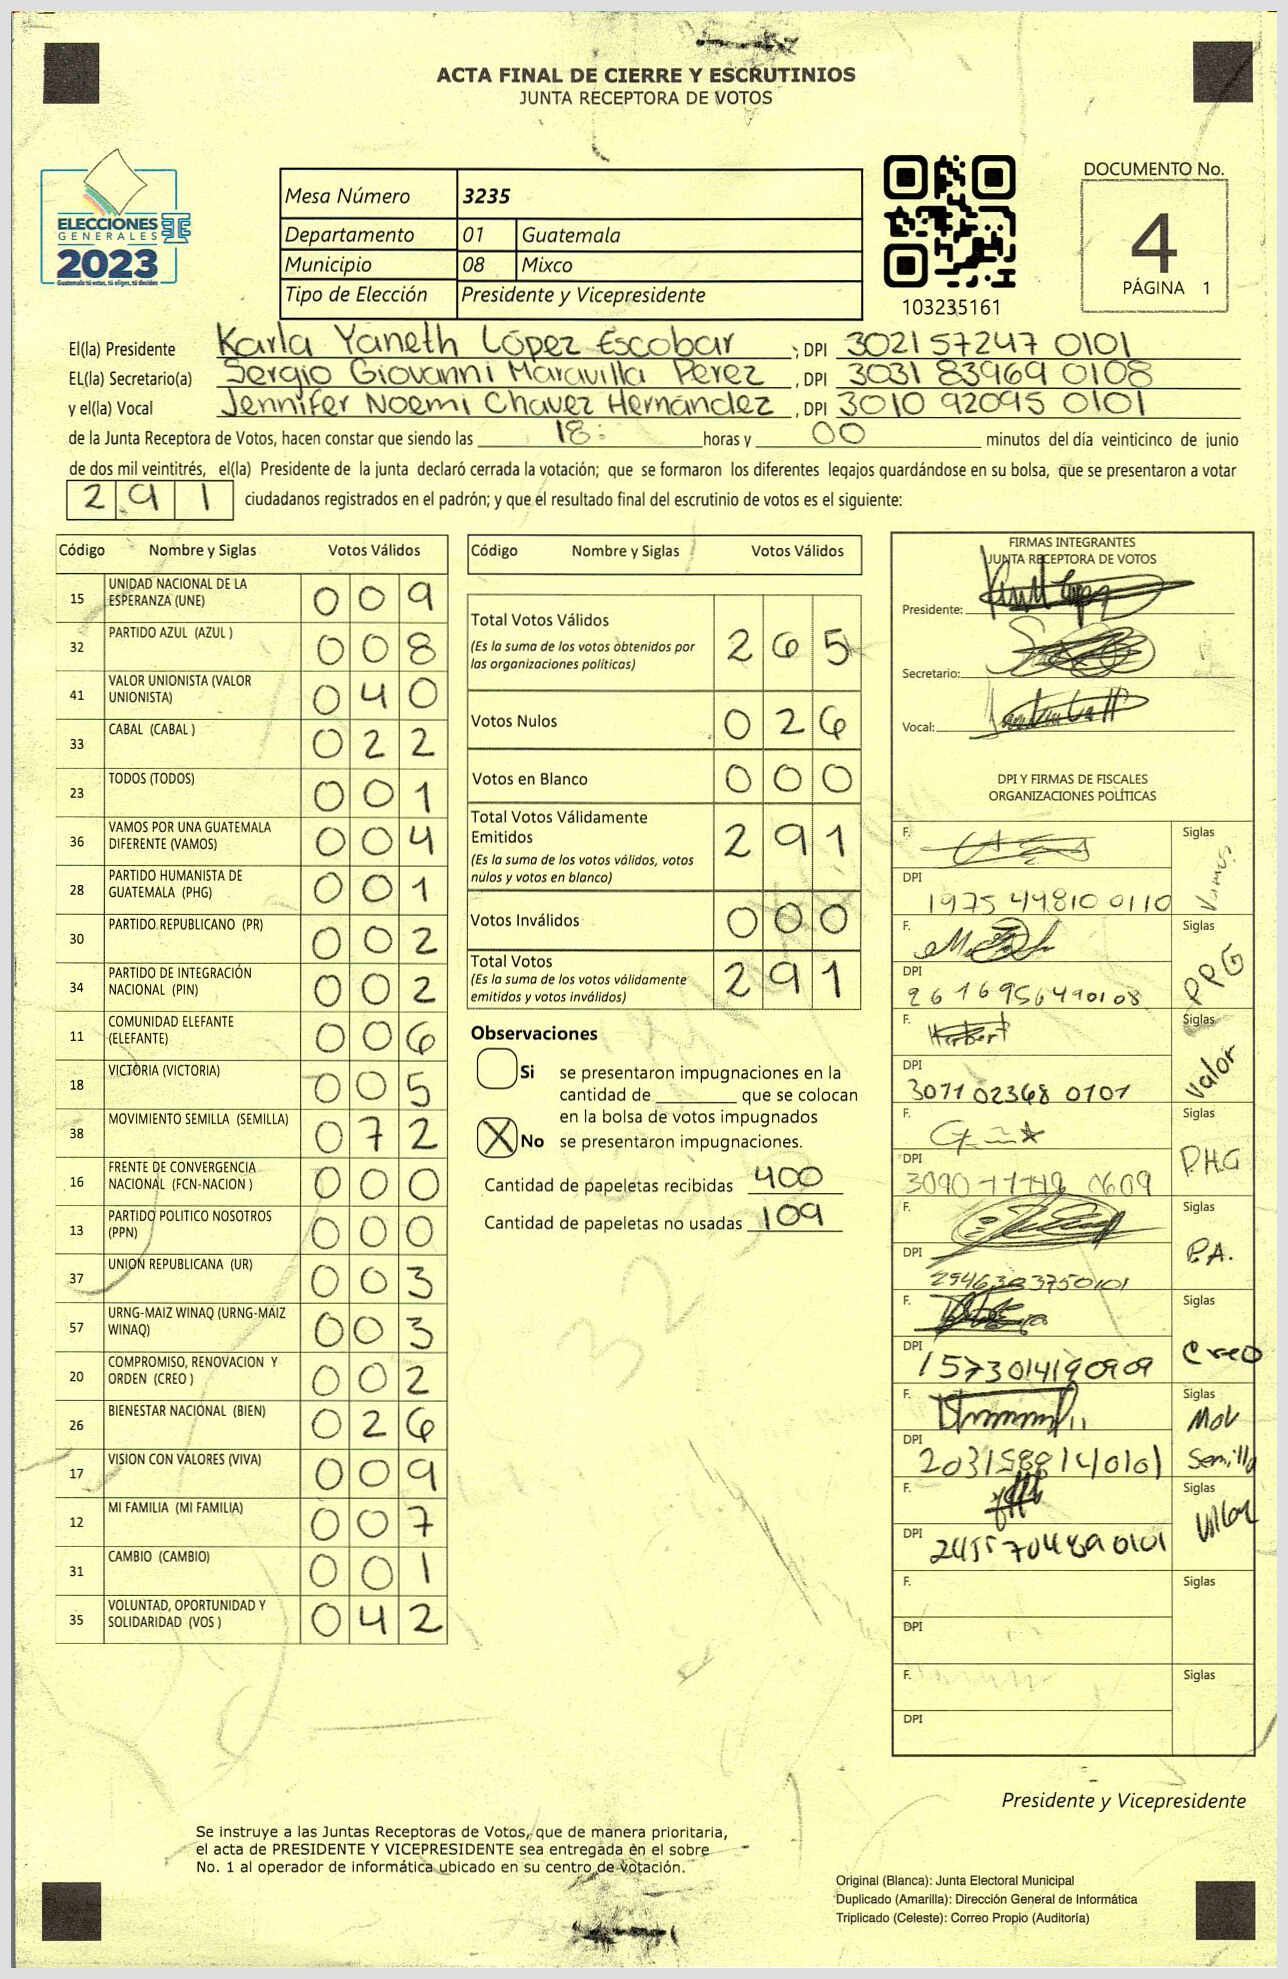 ACTA FINAL DE CIERRE Y ESCRUTINIOS
JUNTA RECEPTORA DE VOTOS
ELECCIONES
GENERALES
2023
Guatemala tú votas, tú eliges, tú decides
Mesa Número 3235
Departamento 01 Guatemala
Municipio 08 Mixco
Tipo de Elección Presidente y Vicepresidente
103235161
DOCUMENTO No.
4
PÁGINA 1
El(la) Presidente Karla Yaneth López Escobar, DPI 3021 57247 0101
EL(la) Secretario(a) Sergio Giovanni Maravilla Pérez, DPI 3031 83969 0108
y el(la) Vocal Jennifer Noemi Chavez Hernández, DPI 3010 92095 0101
de la Junta Receptora de Votos, hacen constar que siendo las 18: horas y 00 minutos del día veinticinco de junio
de dos mil veintitrés, el(la) Presidente de la junta declaró cerrada la votación; que se formaron los diferentes legajos guardándose en su bolsa, que se presentaron a votar
291 ciudadanos registrados en el padrón; y que el resultado final del escrutinio de votos es el siguiente:
Código Nombre y Siglas Votos Válidos
15 UNIDAD NACIONAL DE LA ESPERANZA (UNE) 009
32 PARTIDO AZUL (AZUL ) 008
41 VALOR UNIONISTA (VALOR UNIONISTA) 040
33 CABAL (CABAL ) 022
23 TODOS (TODOS) 001
36 VAMOS POR UNA GUATEMALA DIFERENTE (VAMOS) 004
28 PARTIDO HUMANISTA DE GUATEMALA (PHG) 001
30 PARTIDO REPUBLICANO (PR) 002
34 PARTIDO DE INTEGRACIÓN NACIONAL (PIN) 002
11 COMUNIDAD ELEFANTE (ELEFANTE) 006
18 VICTORIA (VICTORIA) 005
38 MOVIMIENTO SEMILLA (SEMILLA) 072
16 FRENTE DE CONVERGENCIA NACIONAL (FCN-NACION ) 000
13 PARTIDO POLITICO NOSOTROS (PPN) 000
37 UNION REPUBLICANA (UR) 003
57 URNG-MAIZ WINAQ (URNG-MAIZ WINAQ) 003
20 COMPROMISO, RENOVACION Y ORDEN (CREO ) 002
26 BIENESTAR NACIONAL (BIEN) 026
17 VISION CON VALORES (VIVA) 009
12 MI FAMILIA (MI FAMILIA) 007
31 CAMBIO (CAMBIO) 001
35 VOLUNTAD, OPORTUNIDAD Y SOLIDARIDAD (VOS ) 042
Código Nombre y Siglas Votos Válidos
Total Votos Válidos 265
(Es la suma de los votos obtenidos por
las organizaciones políticas)
Votos Nulos 026
Votos en Blanco 000
Total Votos Válidamente
Emitidos 291
(Es la suma de los votos válidos, votos
nulos y votos en blanco)
Votos Inválidos 000
Total Votos 291
(Es la suma de los votos válidamente
emitidos y votos inválidos)
Observaciones
Si se presentaron impugnaciones en la
cantidad de ________ que se colocan
en la bolsa de votos impugnados
X No se presentaron impugnaciones.
Cantidad de papeletas recibidas 400
Cantidad de papeletas no usadas 109
FIRMAS INTEGRANTES
JUNTA RECEPTORA DE VOTOS
Presidente:
Secretario:
Vocal:
DPI Y FIRMAS DE FISCALES
ORGANIZACIONES POLÍTICAS
F. Siglas Vamos
DPI 1975 44810 0110
F. Siglas PPG
DPI
F. Herbert Siglas Valor
DPI 3071 02368 0101
F. Siglas P.H.G
DPI
F. Siglas P.A.
DPI 2946303750101
F. Siglas Creo
DPI 1573014190909
F. Siglas Mov
Semilla
DPI 2031588140101
F. Siglas
DPI
F. Siglas
DPI
F. Siglas
DPI
Presidente y Vicepresidente
Se instruye a las Juntas Receptoras de Votos, que de manera prioritaria,
el acta de PRESIDENTE Y VICEPRESIDENTE sea entregada en el sobre
No. 1 al operador de informática ubicado en su centro de votación.
Original (Blanca): Junta Electoral Municipal
Duplicado (Amarilla): Dirección General de Informática
Triplicado (Celeste): Correo Propio (Auditoría)